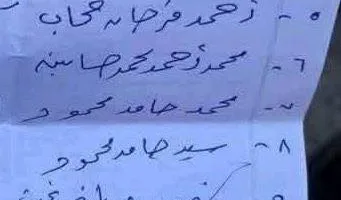 ٥- أحمد فرحان حجاب
٦- محمد أحمد محمد حسانين
٧- محمد حامد محمود
٨- سيد حامد محمود